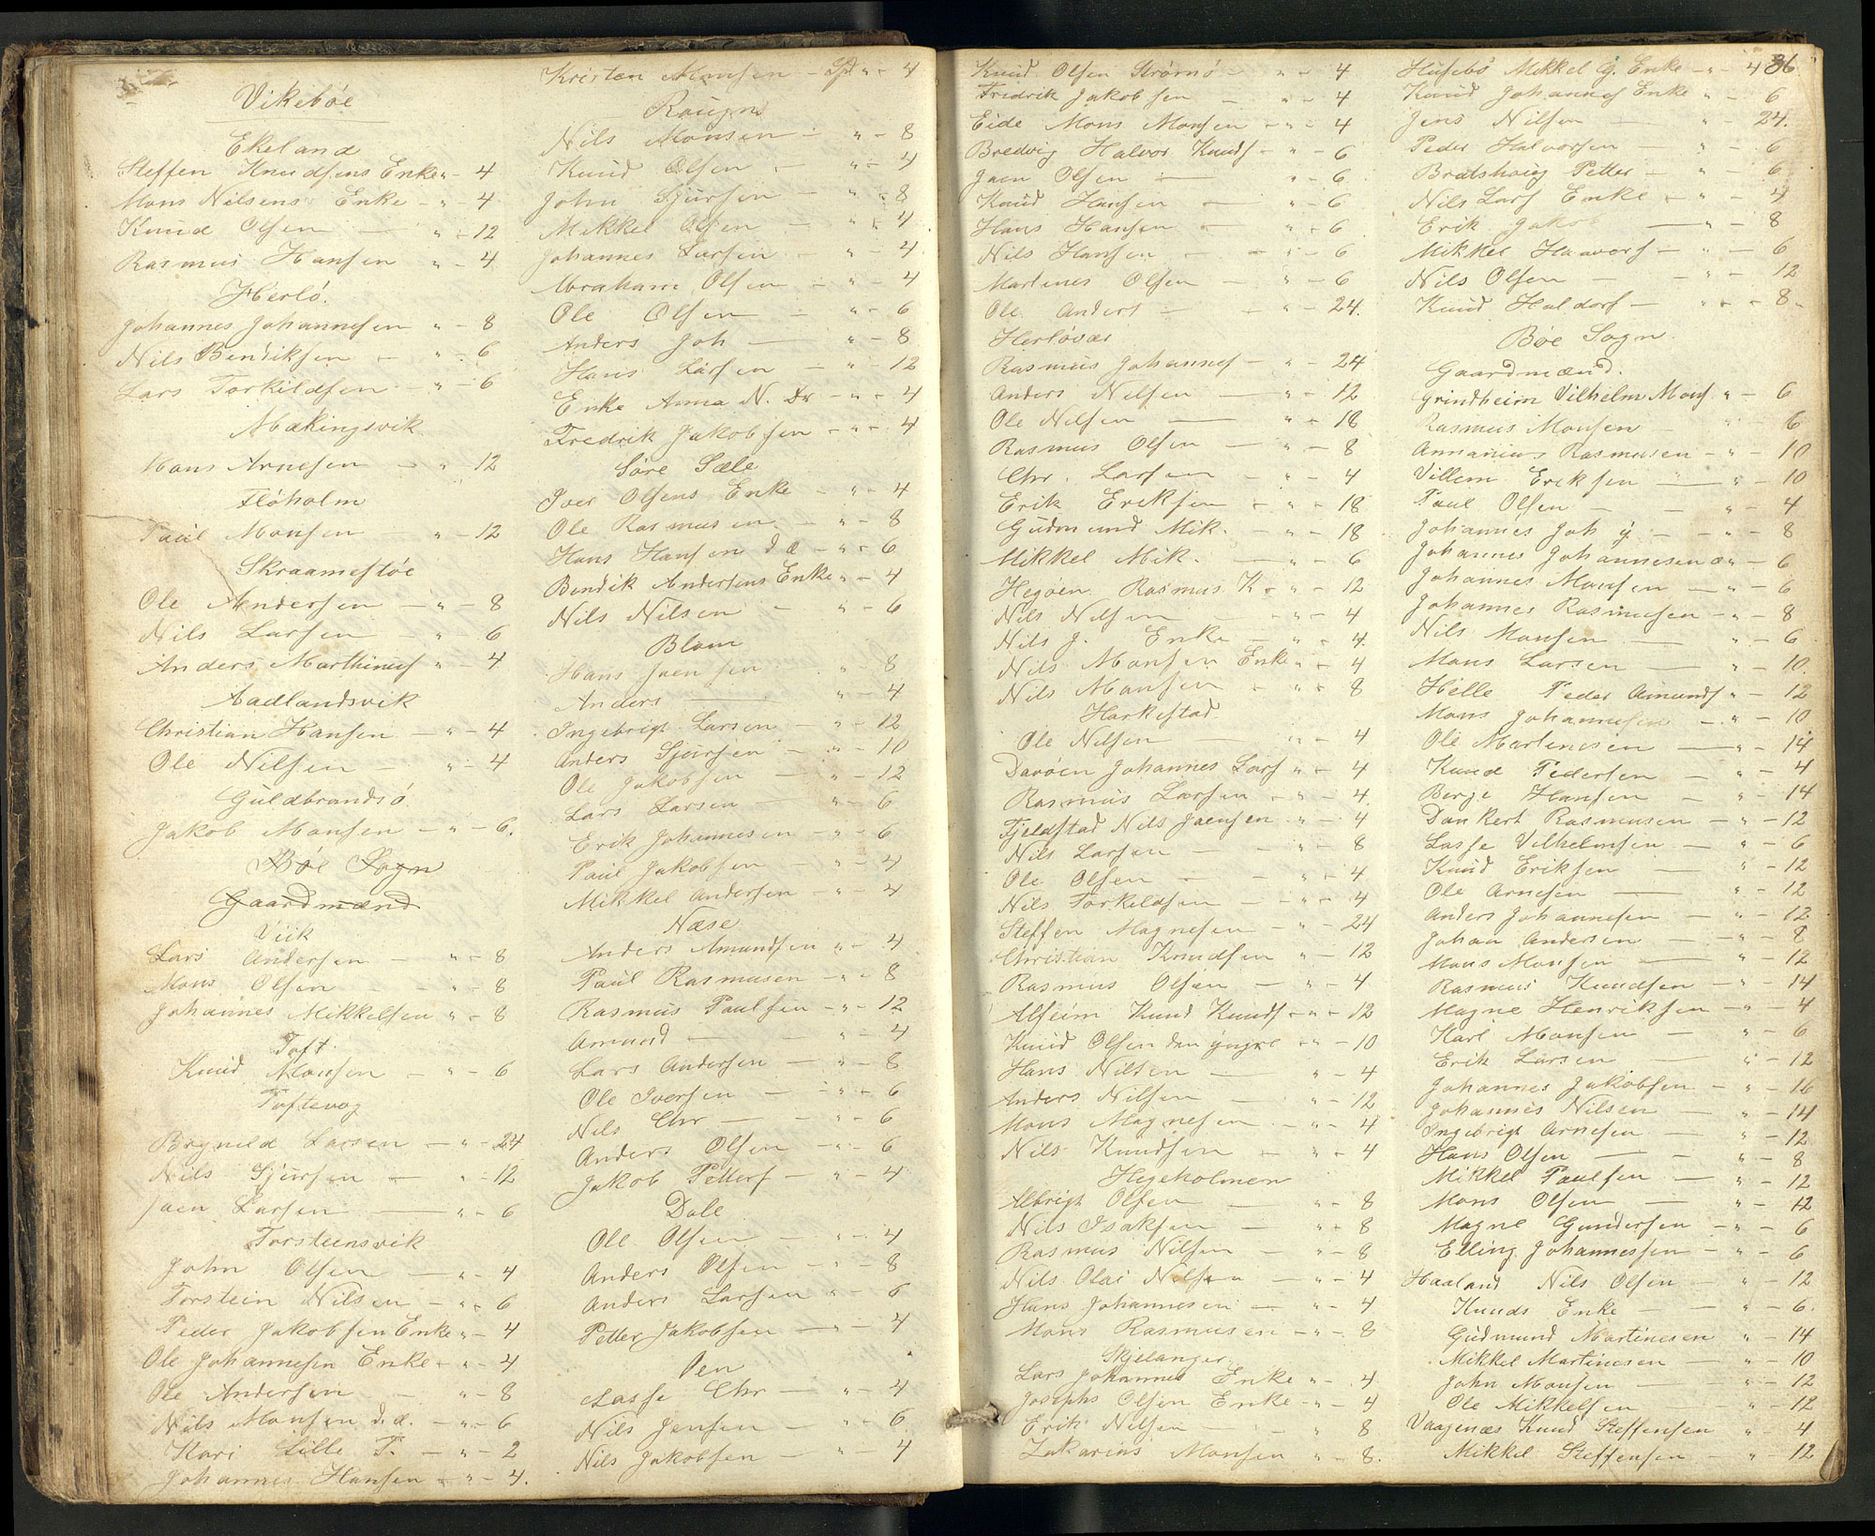 Vikebøe
Ekeland
Steffen Knudsens Enke " - 4
Mons Nilsens Enke - " - 4
Knud Olsen - " - 12
Rasmus Hansen " - 4
Herlö.
Johannes Johannesen " - 8
Nils Bendiksen - " - 6
Lars Torkildsen - " - 6
Mækingsvik
Hans Arnesen - " - 12
Flöholm
Paul Monsen " - 12
Skraamestøe
Ole Andersen - " - 8
Nils Larsen - " - 6
Anders Marthinus " - 4
Aadlandsvik
Christian Hansen - " - 4
Ole Nilsen - " - 4
Guldbrandsö
Jakob Monsen - " - 6.
Bøe Sogn
Gaardmænd
Viik
Lars Andersen - " - 8
Mons Olsen - " - 8
Johannes Mikkelsen " - 8
Toft
Knud Monsen - " - 6
Toftevog
Brynild Larsen - " - 24
Nils Sjursen - " - 12
Jaen Larsen - " - 6
Torsteinsvik
John Olsen - " - 4
Torstein Nilsen - " - 6
Peder Jakobsen Enke " - 4
Ole Johannesen Enke - " - 4
Ole Andersen - " - 8
Nils Monsen d.æ. - " - 6
Kari Lille T. - " - 2
Johannes Hansen - " - 4.
Kristen Monsen - Spd " - 4
Rougn
Nils Monsen - " - 8
Knud Olsen - " - 4
John Sjursen - " - 8
Mikkel Olsen - " - 4
Johannes Larsen - " - 4
Abraham Olsen - " - 4
Ole Olsen - " - 6
Anders Joh - " - 8
Hans Larsen - " - 12
Enke Anna N. Dr - " - 4
Fredrik Jakobsen - " - 4
Søre Sæle
Iver Olsens Enke - " - 4
Ole Rasmusen - " - 8
Hans Hansen d æ - " - 6
Bendik Andersens Enke " - 4
Nils Nilsen - " - 6
Blom
Hans Jaensen " 8
Anders - " - 4
Ingebrigt Larsen - " - 12
Anders Sjursen - " - 10
Ole Jakobsen - " - 12
Lars Larsen - " - 6
Erik Johannesen - " - 6
Paul Jakobsen - " - 4
Mikkel Andersen - " - 4
Næse
Anders Amundsen " - 4
Paul Rasmusen - " - 8
Rasmus Paulsen - " - 12
Amund - " - 4
Lars Andersen - " - 8
Ole Iversen - " - 6
Nils Chr - " - 6
Anders Olsen - " - 6
Jakob Petters - " - 4
Dale
Ole Olsen - " - 4
Anders Olsen - " - 8
Anders Larsen " - 6
Petter Jakobsen - " - 4
Oen
Lasse Chr - " - 4
Nils Jensen - " - 6
Nils Jakobsen - " - 4
36
Knud Olsen Strømø - " - 4
Fredrik Jakobsen - " - 4
Eide Mons Monsen - " - 4
Bredvig Halvor Knuds - " - 6
Jaen Olsen - " - 6
Knud Hansen - " - 6
Hans Hansen - " - 6
Nils Hansen - " - 6
Martines Olsen - " - 6
Ole Anders - " - 24.
Herløvær
Rasmus Johannes - " - 24
Anders Nilsen - " - 12
Ole Nilsen - " - 18
Rasmus Olsen - " - 8
Chr. Larsen - " - 4
Erik Eriksen - " - 18
Gudmund Mik. - " - 18
Mikkel Mik. - " - 6
Hegøen Rasmus K - " - 12
Nils Nilsen - " - 4
Nils J. Enke - " - 4
Nils Monsen Enke " - 4
Nils Monsen - " - 8
Harkestad
Ole Nilsen - " - 4
Davöen Johannes Lars " - 4
Rasmus Larsen - " - 4
Fjeldstad Nils Jaensen " - 4
Nils Larsen - " - 8
Ole Olsen - " - 4
Nils Torkeldsen - " - 4
Steffen Magnesen - " - 24
Christian Knudsen " - 12
Rasmus Olsen - " - 4
Alseim Knud Knuds - " - 12
Knud Olsen den yngre " - 10
Hans Nilsen - " - 4
Anders Nilsen - " - 12
Mons Magnesen - " - 4
Nils Knudsen - " - 4
Hegeholmen
Albrigt Olsen " - 8
Nils Isaksen - " - 8
Rasmus Nilsen - " - 8
Nils Olai Nilsen - " - 4
Hans Johannesen - " - 4
Mons Rasmusen - " - 8
Skjelanger
Lars Johannes Enke " - 4
Josephs Olsen Enke - " - 4
Erik Nilsen - " 8
Zakarias Monsen " - 8.
Husebö Mikkel G. Enke - " - 4
Knud Johannes Enke " - 6
Jens Nilsen - " - 24.
Peder Halvorsen " - 6
Bratshoug Petter - " - 6
Nils Lars Enke - " - 4
Erik Jakob - " - 8
Mikkel Haavors - " - 6
Nils Olsen - " - 12
Knud Haldors - " - 8
Bøe Sogn
Gaardmænd.
Grindheim Vilhelm Mons. " - 6
Rasmus Monsen - " - 6
Annanius Rasmusen - " - 10
Villem Eriksen " - 10
Paul Olsen - " - 4
Johannes Joh y - " - 8
Johannes Johannesen æ " - 6
Johannes Monsen - " - 6
Johannes Rasmusen - " - 8
Nils Monsen - " - 6
Mons Larsen - " - 10
Helle Peder Amunds " - 12
Mons Johannesen - " - 10
Ole Martinesen - " - 14
Knud Pedersen - " - 4
Berge Hansen - " - 14
Dankert Rasmusen - " - 12
Lasse Vilhelmsen - " - 6
Knud Eriksen - " - 12
Ole Arnesen - " - 12
Anders Johannesen - " - 12
Johan Andersen - " - 8
Mons Monsen - " - 12
Rasmus Knudsen - " - 14
Magne Henriksen - " - 4
Karl Monsen - " - 6
Erik Larsen - " - 12
Johannes Jakobsen - " - 16
Johannes Nilsen - " - 14
Ingebrigt Arnesen - " - 12
Hans Olsen - " - 8
Mikkel Paulsen - " - 12
Mons Olsen - " - 12
Magne Gundersen - " - 6
Elling Johannessen - " - 6
Haaland Nils Olsen - " - 12
Knuds Enke - " - 6.
Gudmund Martinesen " - 14
Mikkel Martinesen - " - 10
John Monsen - " - 12
Ole Mikkelsen " - 12
Vaagenes Knud Steffensen " - 4
Mikkel Steffensen - " - 12